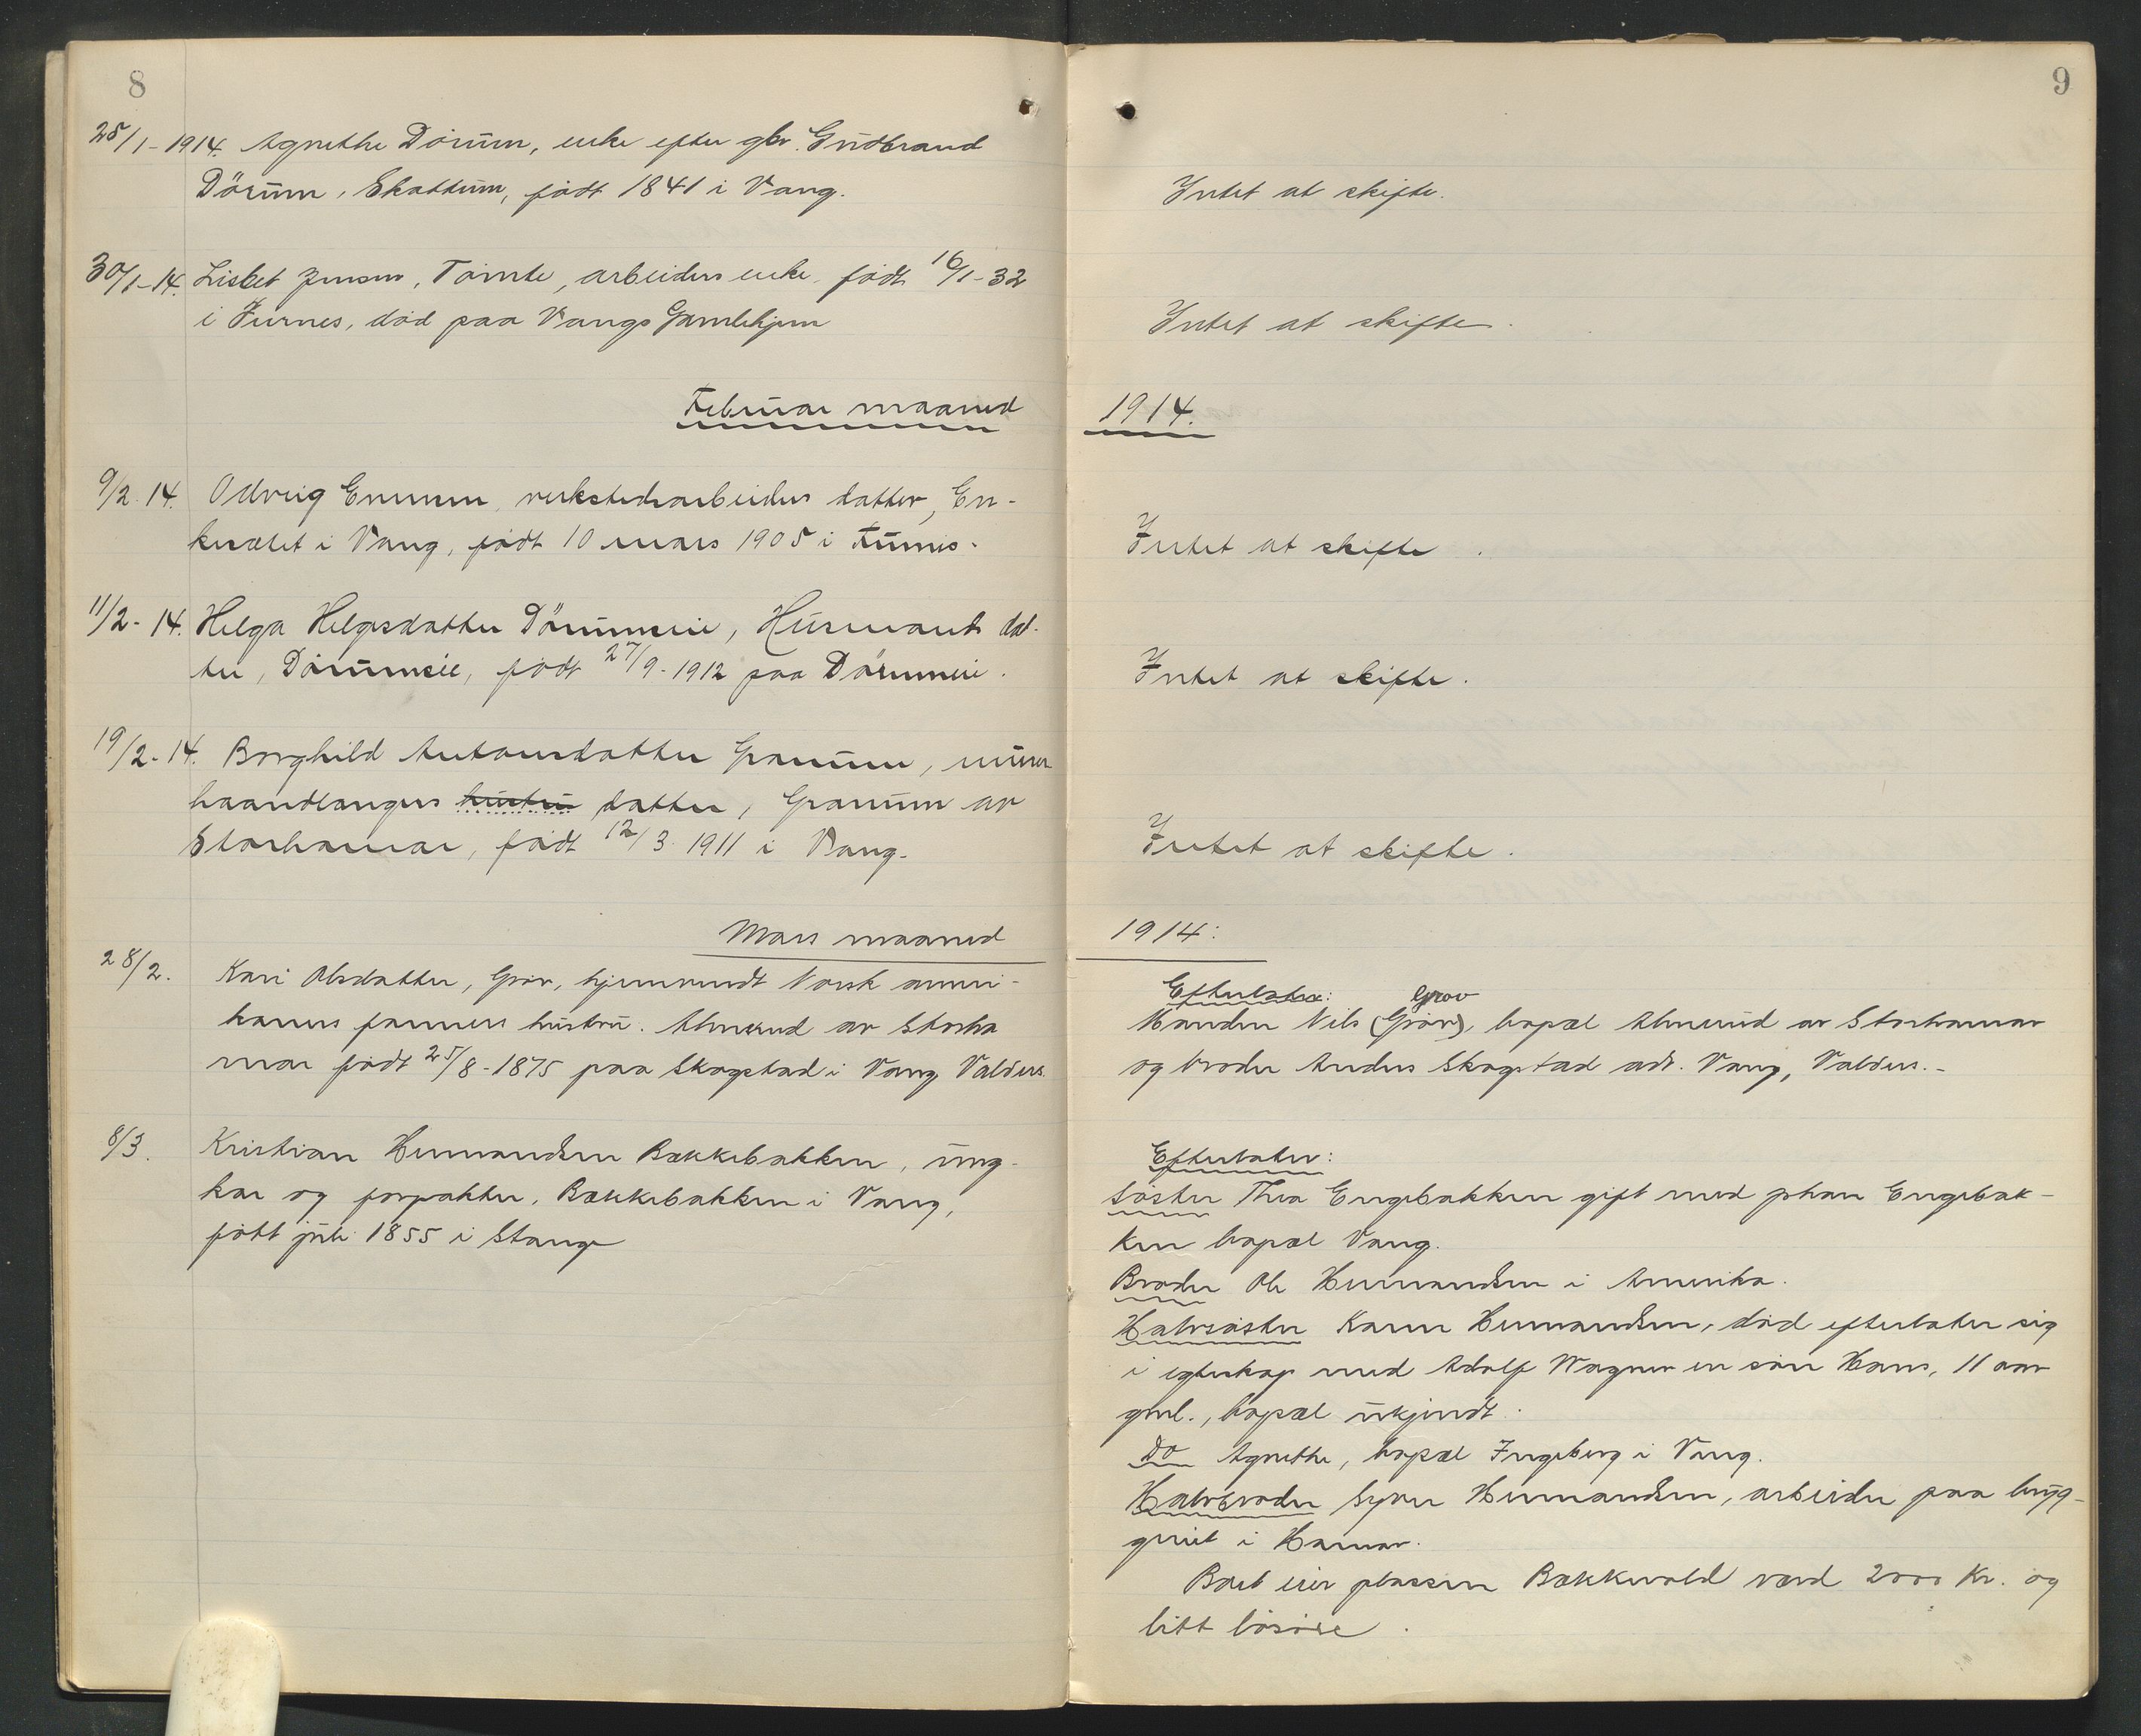 8
25/1-1914. Agnethe Dörum, enke efter gbr. Gudbrand
Dörum, Skattum, födt 1841 i Vang.
30/1-14. Lisbet Jensen, Tömte, arbeiders enke, födt 16/1-32
i Furnes, död paa Vangs Gamlehjem
Februar maaned
9/2.14. Oddveig Evensen, verkstedsarbeiders datter, En-
kerælet i Vang, födt 10 mars 1905 i Furnes.
11/2-14. Helga Helgesdatter Dörumseie, Husmands dat-
ter, Dörumseie, födt 27/9-1912 paa Dörumseie.
19/2-14. Borghild Antonsdatter Granum, murer
haandlangers hustru datter, Granum av
Storhamar, födt 12/3.1911 i Vang.
Mars maaned
28/2. Kari Olsdatter, Gröv, hjemvendt Norsk ameri-
kaners farmers hustru. Almerud av Storha
mar födt 25/8-1875 paa Skogstad i Vang Valders.
8/3. Kristian Hermandsen Bækkebakken, ung-
kar og forpakter, Bækkebakken i Vang,
födt juli 1855 i Stange
9
Intet at skifte.
Intet at skifte.
1914.
Intet at skifte.
Intet at skifte.
Intet at skifte.
1914:
Efterlater: Gröv
Manden Nils (Gröv), bopæl Almerud av Storhamar
og broder Anders Skogstad adr. Vang, Valders.-
Efterlater:
Söster Thea Engebakken gift med Johan Engebak-
ken bopæl Vang.
Broder Ole Hermandsen i Amerika.
Halvsöster Karen Hermandsen, död efterlater sig
i egteskap med Adolf Wagner en sön Hans, 11 aar
gml., bopæl ukjendt.
Do Agnethe, bopæl Ingeberg i Vang.
Halvbroder Syver Hermandsen, arbeider paa bryg-
geriet i Hamar.
Boet eier plassen Bækkevold værd 2000 Kr. og
litt lösöre.